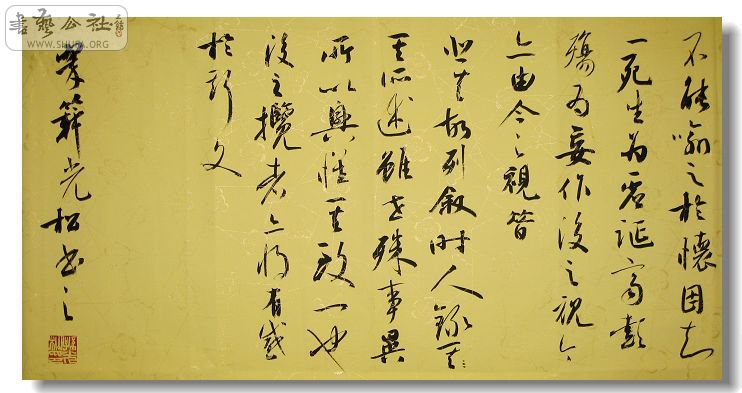 書藝公社
WWW.SHUFA.ORG
不能喻之於懷固知
一死生為虛誕齊彭
殤為妄作後之視今
亦由今之視昔
悲夫故列叙時人錄其
其所述雖世殊事異
所以興懷其致一也
後之攬者亦將有感
於斯文
光松書之